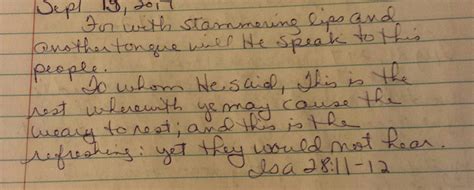 Sept 13, 2017
For with stammering lips and
another tongue will He speak to this
people.
To whom He said, This is the
rest wherewith ye may cause the
weary to rest; and this is the
refreshing: yet they would not hear.
Isa 28:11-12